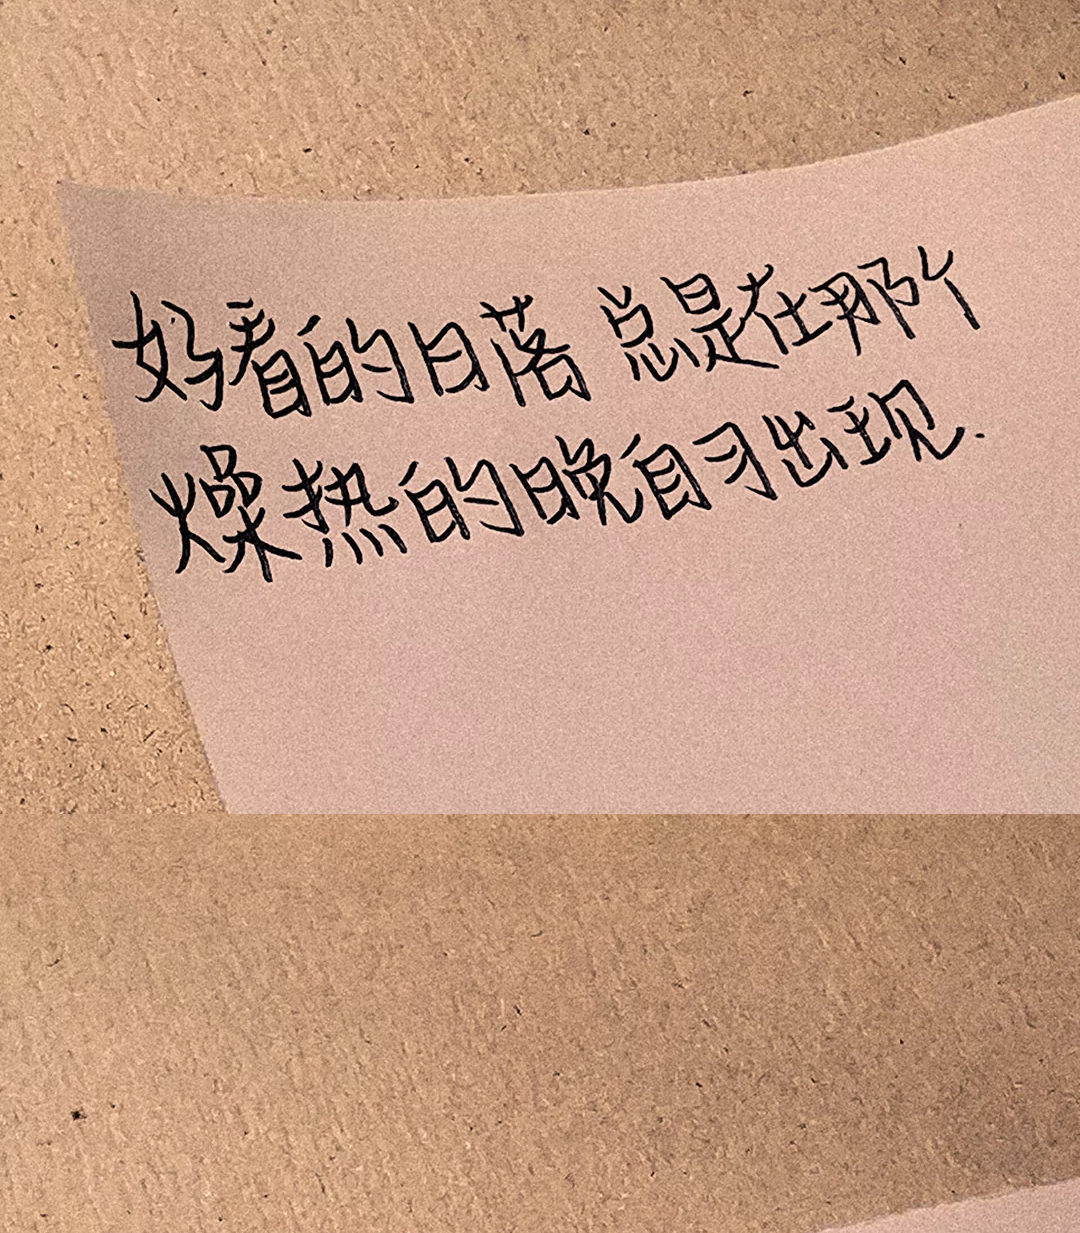 好看的日落 总是在那个
燥热的晚自习出现.